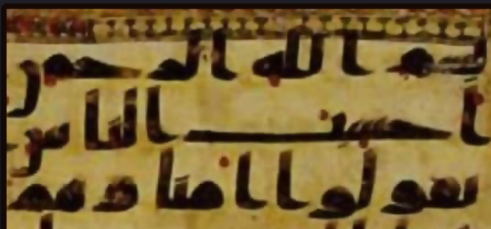 بسم الله الرحمن
احسب الناس
يقولوا امنا وهم